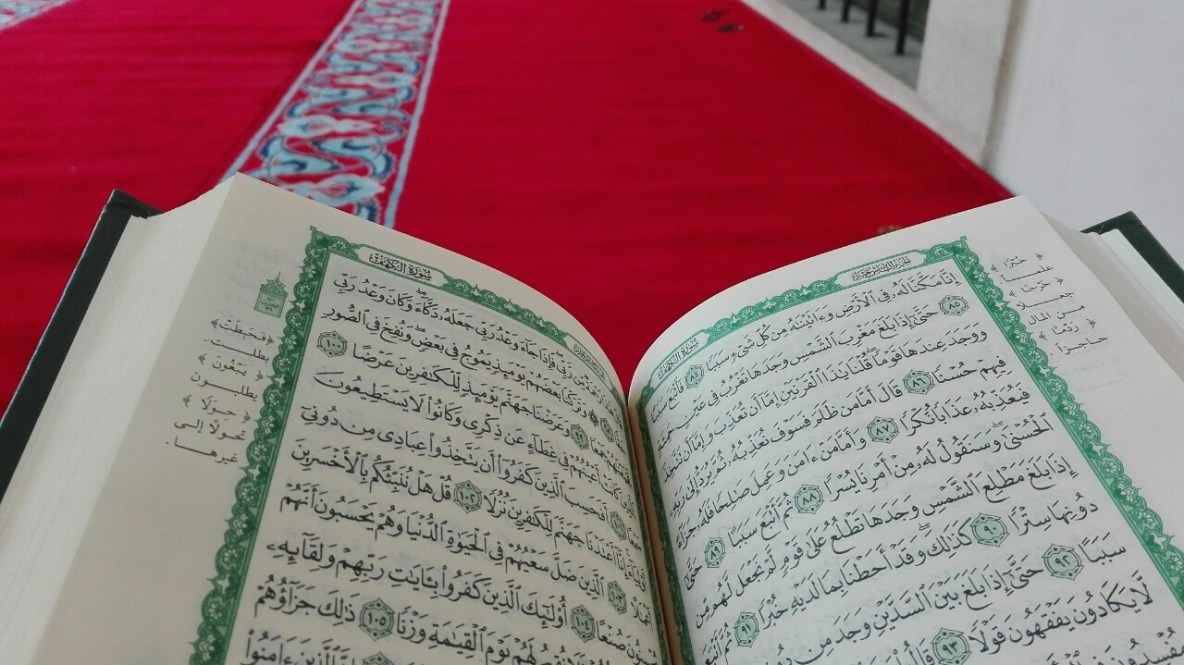 سُورَةُ الكَهْفِ
إِنَّا مَكَّنَّا لَهُۥ فِي ٱلْأَرْضِ وَءَاتَيْنَٰهُ مِن كُلِّ شَىْءٍ سَبَبًا ٨٤ فَأَتْبَعَ سَبَبًا
٨٥ حَتَّىٰٓ إِذَا بَلَغَ مَغْرِبَ ٱلشَّمْسِ وَجَدَهَا تَغْرُبُ فِى عَيْنٍ
وَوَجَدَ عِندَهَا قَوْمًا قُلْنَا يَٰذَا ٱلْقَرْنَيْنِ إِمَّآ أَن تُعَذِّبَ وَإِمَّآ أَن تَتَّخِذَ
فِيهِمْ حُسْنًا ٨٦ قَالَ أَمَّا مَن ظَلَمَ فَسَوْفَ نُعَذِّبُهُۥ ثُمَّ يُرَدُّ إِلَىٰ رَبِّهِۦ
فَيُعَذِّبُهُۥ عَذَابًا نُّكْرًا ٨٧ وَأَمَّا مَنْ ءَامَنَ وَعَمِلَ صَٰلِحًا فَلَهُۥ جَزَآءً
ٱلْحُسْنَىٰ وَسَنَقُولُ لَهُۥ مِنْ أَمْرِنَا يُسْرًا ٨٨ ثُمَّ أَتْبَعَ سَبَبًا ٨٩ حَتَّىٰٓ
إِذَا بَلَغَ مَطْلِعَ ٱلشَّمْسِ وَجَدَهَا تَطْلُعُ عَلَىٰ قَوْمٍ لَّمْ نَجْعَل لَّهُم مِّن
دُونِهَا سِتْرًا ٩٠ كَذَٰلِكَ وَقَدْ أَحَطْنَا بِمَا لَدَيْهِ خُبْرًا ٩١ ثُمَّ أَتْبَعَ
سَبَبًا ٩٢ حَتَّىٰٓ إِذَا بَلَغَ بَيْنَ ٱلسَّدَّيْنِ وَجَدَ مِن
لَّا يَكَادُونَ يَفْقَهُونَ قَوْلًا ٩٣
﴿ خُبْرًا ﴾
علمًا
﴿ خَرْجًا ﴾
جعلًا
من المال
﴿ رَدْمًا ﴾
حاجزًا
سُورَةُ الكَهْفِ
رَبِّى فَإِذَا جَآءَ وَعْدُ رَبِّى جَعَلَهُۥ دَكَّآءَ وَكَانَ وَعْدُ رَبِّى
وَتَرَكْنَا بَعْضَهُمْ يَوْمَئِذٍ يَمُوجُ فِى بَعْضٍ وَنُفِخَ فِى ٱلصُّورِ
٩٩ وَعَرَضْنَا جَهَنَّمَ يَوْمَئِذٍ لِّلْكَٰفِرِينَ عَرْضًا ١٠٠
كَانَتْ أَعْيُنُهُمْ فِى غِطَآءٍ عَن ذِكْرِى وَكَانُوا۟ لَا يَسْتَطِيعُونَ
أَفَحَسِبَ ٱلَّذِينَ كَفَرُوٓا۟ أَن يَتَّخِذُوا۟ عِبَادِى مِن دُونِىٓ
إِنَّآ أَعْتَدْنَا جَهَنَّمَ لِلْكَٰفِرِينَ نُزُلًا ١٠٢ قُلْ هَلْ نُنَبِّئُكُم بِٱلْأَخْسَرِينَ
ٱلَّذِينَ ضَلَّ سَعْيُهُمْ فِى ٱلْحَيَوٰةِ ٱلدُّنْيَا وَهُمْ يَحْسَبُونَ أَنَّهُمْ
صُنْعًا أُو۟لَٰٓئِكَ ٱلَّذِينَ كَفَرُوا۟ بِـَٔايَٰتِ رَبِّهِمْ وَلِقَآئِهِۦ
لَهُمْ يَوْمَ ٱلْقِيَٰمَةِ وَزْنًا ١٠٥ ذَٰلِكَ جَزَآؤُهُمْ
ءَامَنُوا۟
﴿ فَحَبِطَتْ ﴾
بطلت
﴿ يَبْغُونَ ﴾
يطلبون
﴿ حِوَلًا ﴾
تحولًا إلى
غيرها.